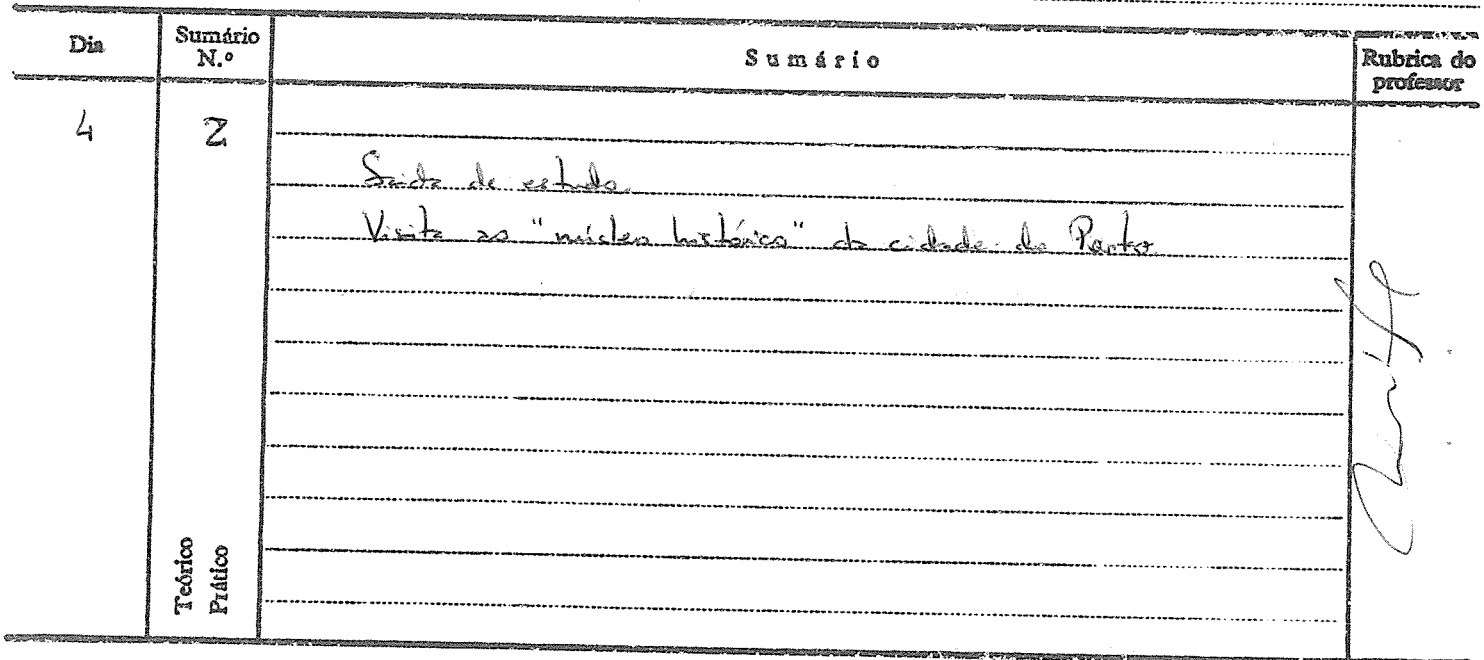 Dia
Sumário N.º
Sumário
Rubrica do professor
4
2
Saída de estudo.
Visita ao "núcleo histórico" da cidade do Porto.
Teórico
Prático